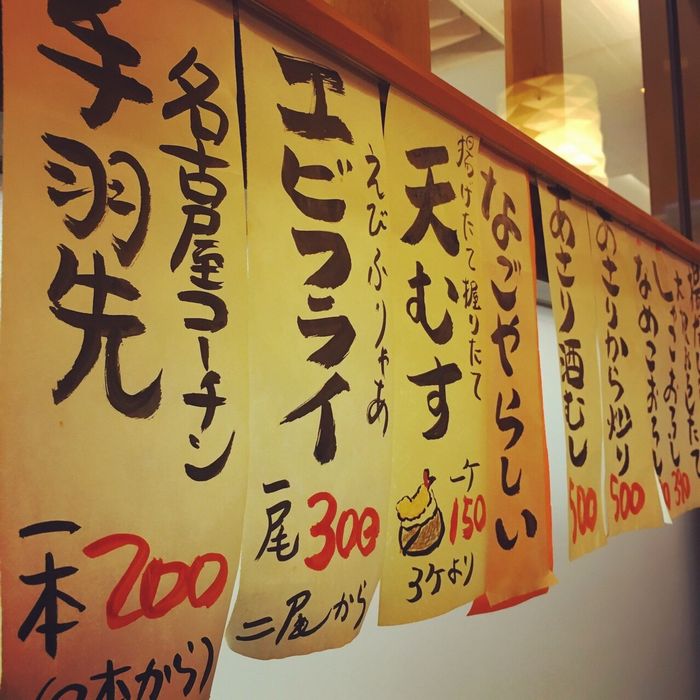 名古屋コーチン
手羽先
一本200
(2本から)
えびふりゃあ
エビフライ
一尾300
二尾から
揚げたて握りたて
天むす
一ケ150
3ケより
なごやらしい
あさり酒むし
500
のさりから炒り
500
なめこおろし
しらすおろし
390